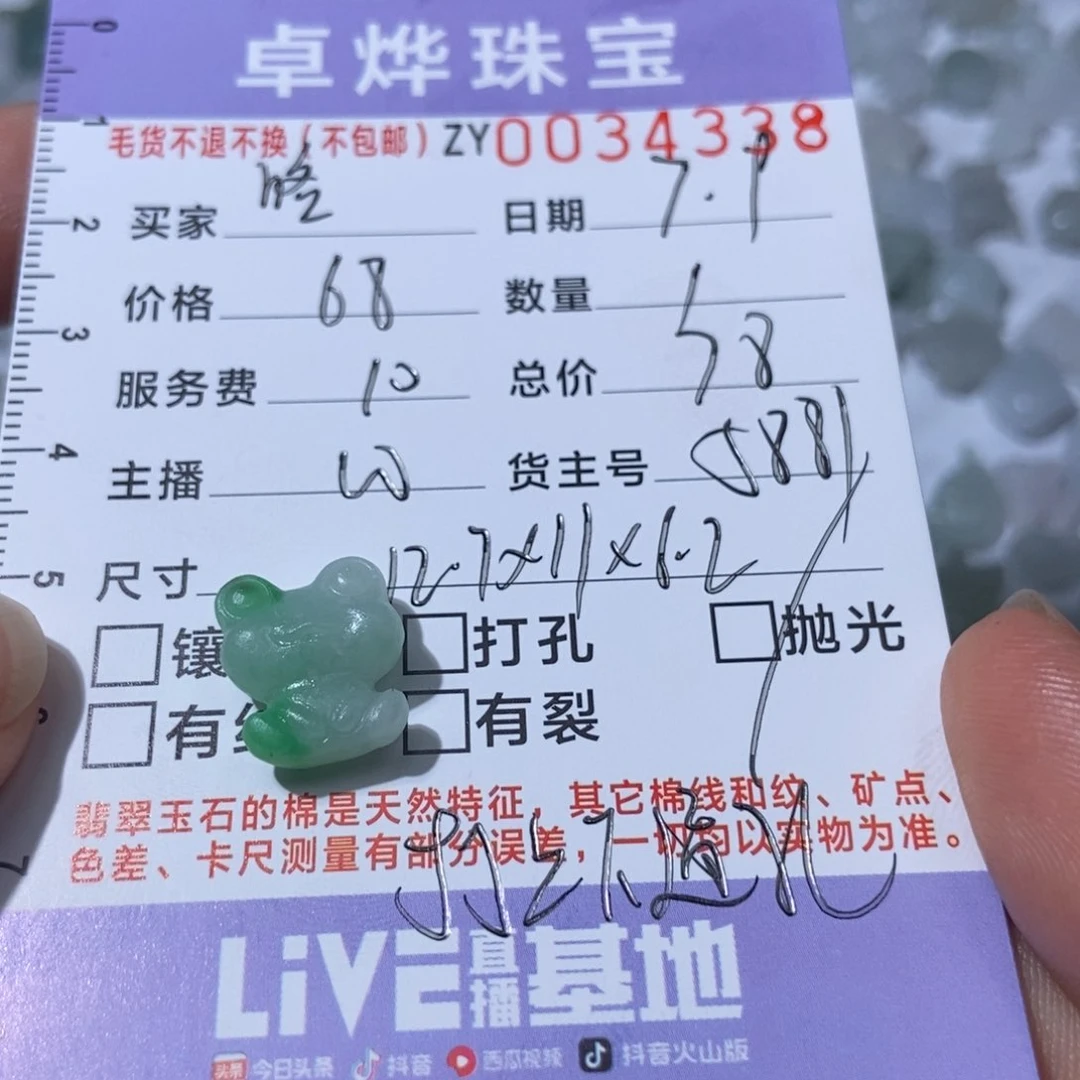 卓烨珠宝
毛货不退不换（不包邮）ZY0034338
买家 日期 7.9
价格 68 数量 1
服务费 10 总价 58
主播 W 货主号 5881
尺寸 12.7x11x6.2
镶 打孔 抛光
有 有裂
翡翠玉石的棉是天然特征，其它棉线和纹、矿点、
色差、卡尺测量有部分误差，一切均以实物为准。
LiVE直播基地
头条 今日头条 抖音 西瓜视频 抖音火山版
0
1
2
3
4
5
6
7